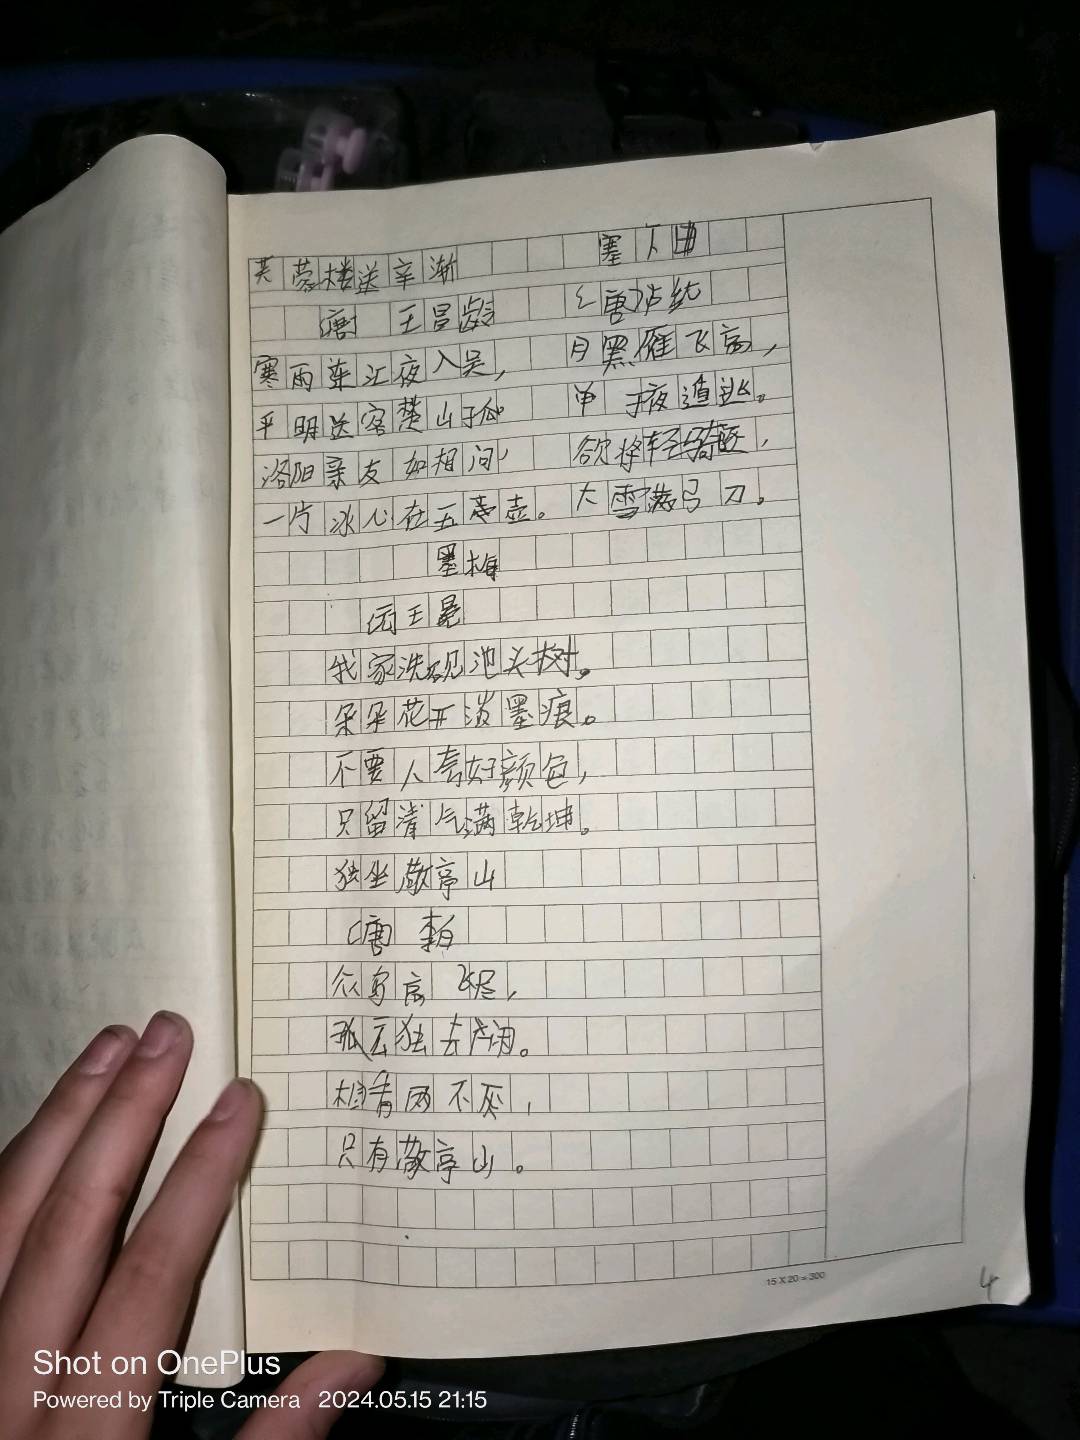 芙蓉楼送辛渐 塞下曲
〔唐〕王昌龄 〔唐〕卢纶
寒雨连江夜入吴， 月黑雁飞高，
平明送客楚山孤 单于夜遁逃。
洛阳亲友如相问， 欲将轻骑逐，
一片冰心在玉壶。 大雪满弓刀。
墨梅
〔元〕王冕
我家洗砚池头树。
朵朵花开淡墨痕。
不要人夸好颜色，
只留清气满乾坤。
独坐敬亭山
〔唐〕李白
众鸟高飞尽，
孤云独去闲。
相看两不厌，
只有敬亭山。
15X20=300
4
Shot on OnePlus
Powered by Triple Camera 2024.05.15 21:15